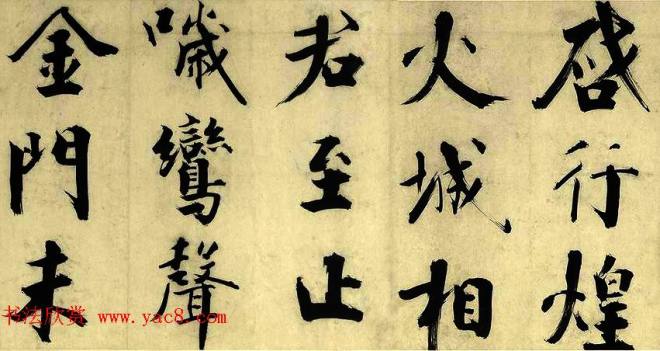 啓行煌
火城相
君至止
噦鸞聲
金門未
书法欣赏 www.yac8.com